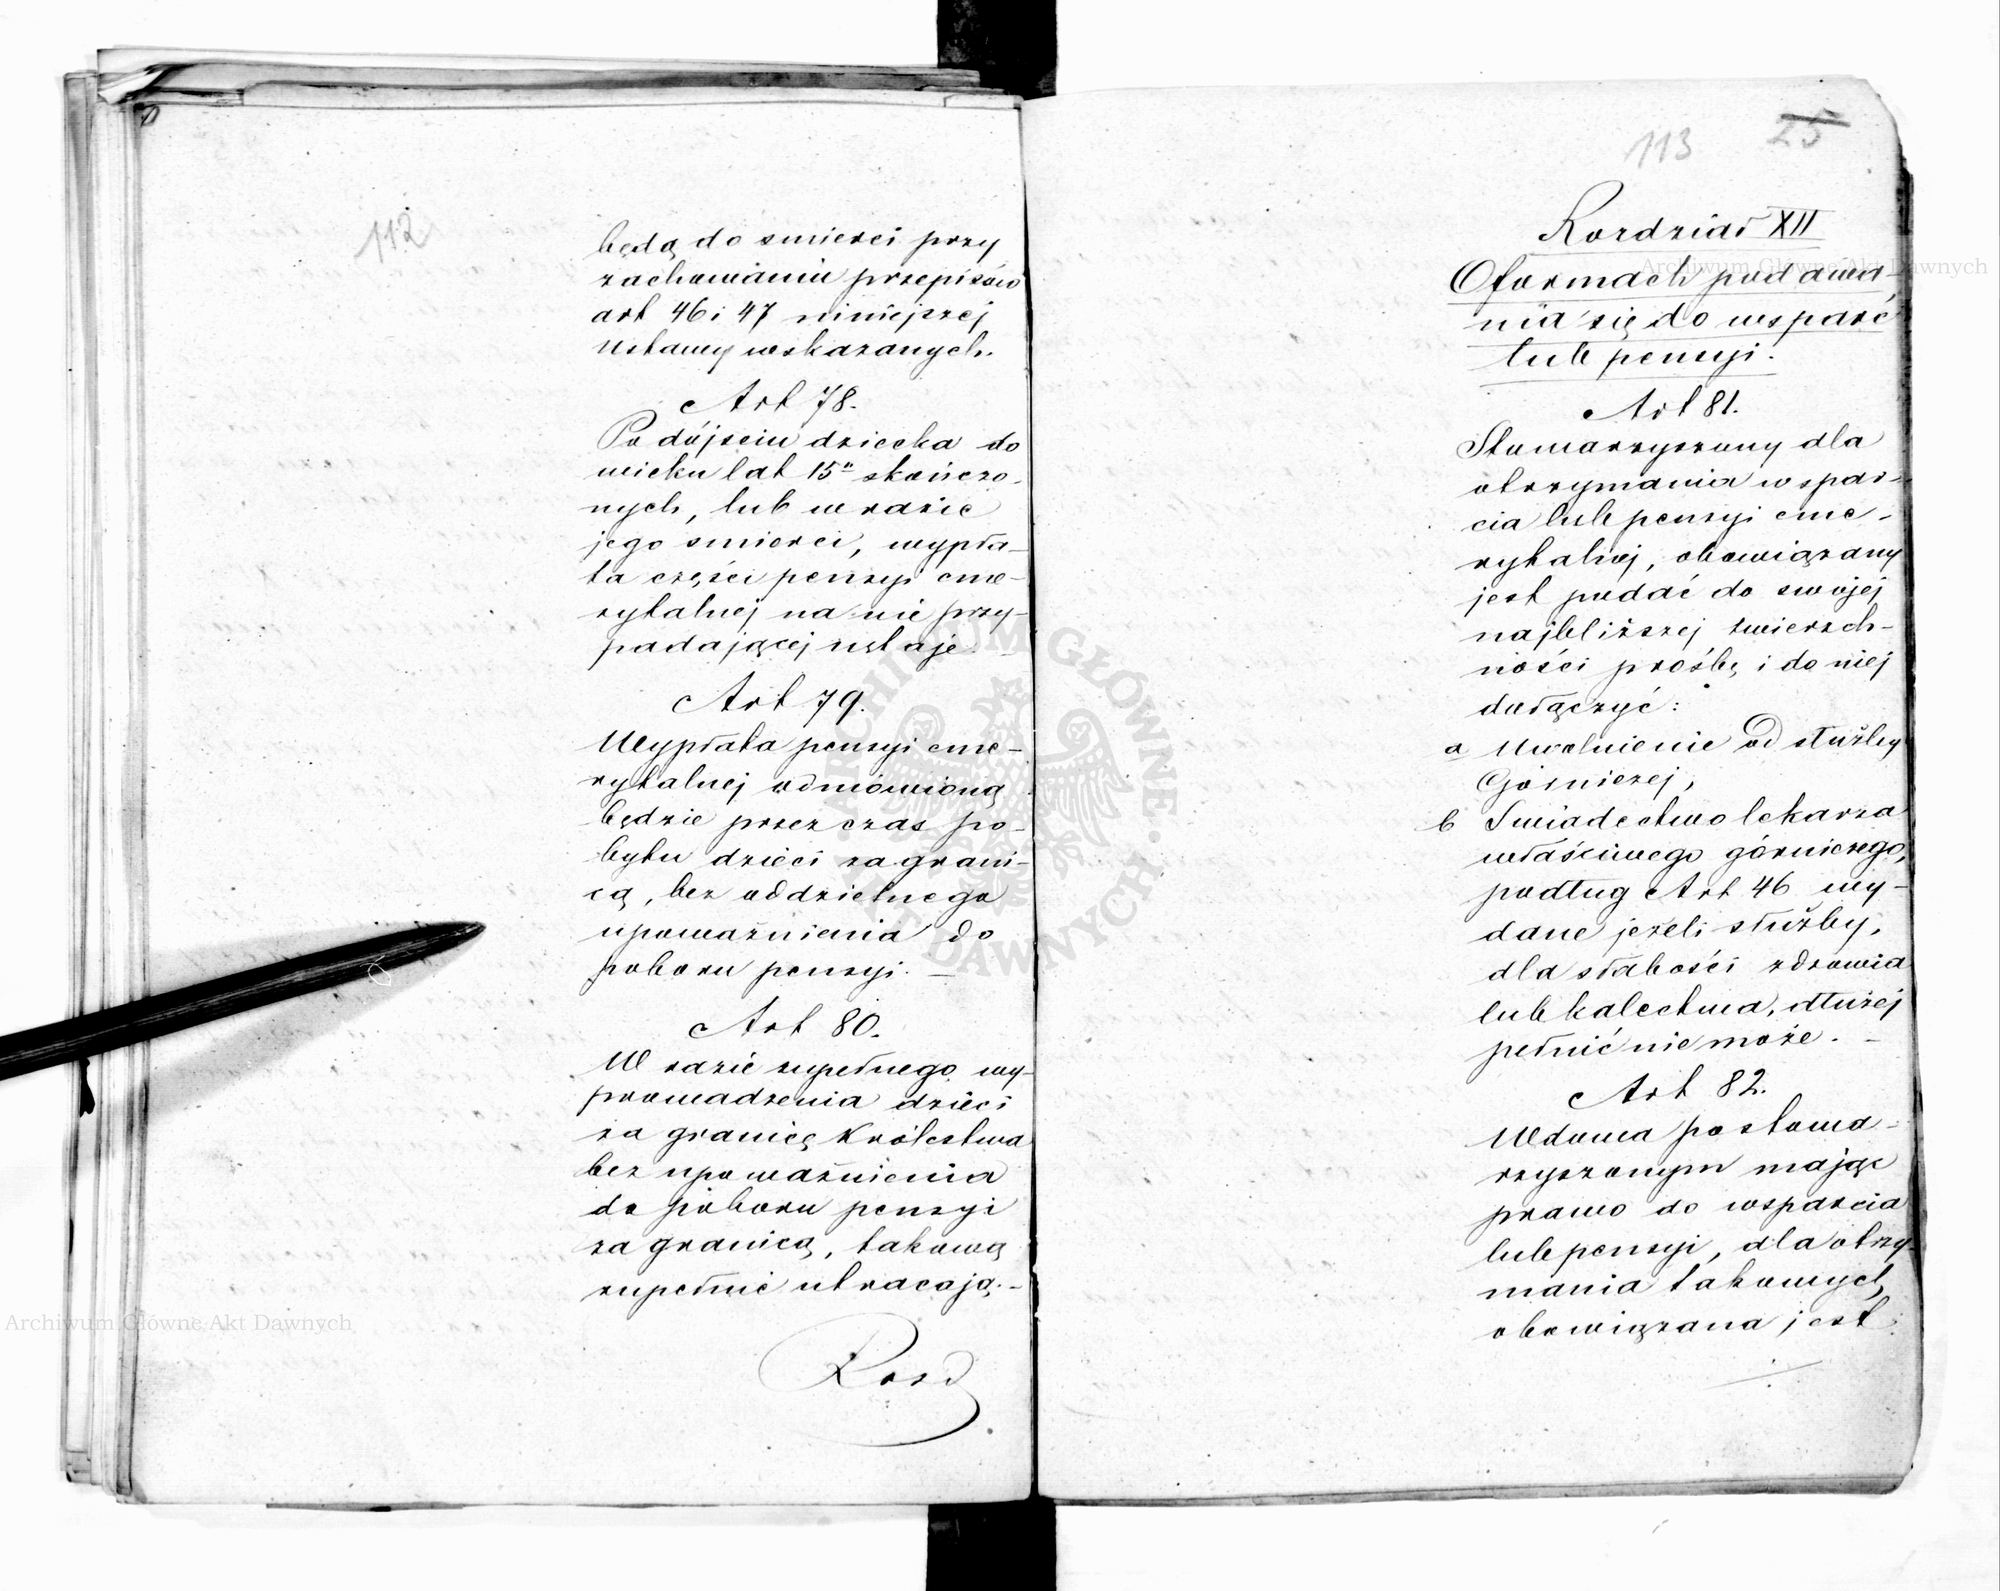 112
będą do smierci przy
zachowaniu przepisów
art 46 i 47 niniejszej
Ustawy wskazanych.
Art 78.
Po dójsciu dziecka do
wieku lat 15u skończo-
nych, lub w razie
jego smierci, wypła-
ta części pensyi eme-
rytalnej na nie przy-
padającej ustaje.
Art 79.
Wypłata pensyi eme-
rytalnej odmówioną
będzie przez czas po-
bytu dzieci za grani-
cą, bez oddzielnego
upoważnienia do
poboru pensyi. —
Art 80.
W razie zupełnego wy-
prowadzenia dzieci
za granicę Królestwa
bez upoważnienia
do poboru pensyi
za granicą, takową
zupełnie utracają. -
Rozd
113 25
Rozdział XII
O formach podawa-
nia się do wsparć
lub pensyi.
Art 81.
Stowarzyszony dla
otrzymania wspar-
cia lub pensyi eme-
rytalnej, obowiązany
jest podać do swojej
najbliższej zwierzch-
ności prośbę i do niej
dołączyć:
a Uwolnienie od służby
Górniczej,
b Swiadectwo lekarza
właściwego górniczego,
podług Art 46 wy-
dane jeżeli służby,
dla słabości zdrowia
lub kalectwa, dłużej
pełnić nie może. -
Art 82.
Wdowa po stowa-
rzyszonym mając
prawo do wsparcia
lub pensyi, dla otrzy-
mania takowych,
obowiązana jest:
Archiwum Główne Akt Dawnych
Archiwum Główne Akt Dawnych
ARCHIWUM GŁÓWNE AKT DAWNYCH